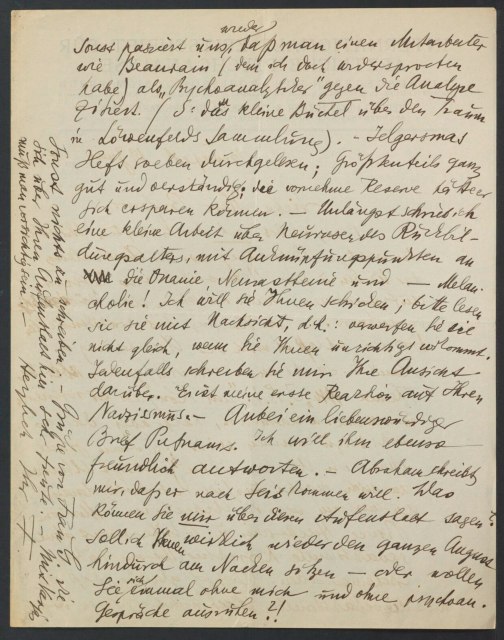 wieder
Sonst passiert uns, daß man einen Mitarbeiter
wie Beaurain (dem ich doch widersprochen
habe) als "Psychoanalytiker" gegen die Analyse
zitiert. (S: das kleine Büchel über den Traum
in Löwenfelds Sammlung). – Jelgersmas
Heft soeben durchgelesen; Größtenteils ganz
gut und verständig; die vornehme Reserve hätte er
sich ersparen können. – Unlängst schrieb ich
eine kleine Arbeit über Neurosen des Rückbil-
dungsalters, mit Anknüpfungspunkten an
die Onanie, Neurasthenie und – Melan-
cholie! Ich will sie Ihnen schicken; bitte lesen
sie sie mit Nachsicht, d.h.: verwerfen Sie sie
nicht gleich, wenn sie Ihnen unrichtig vorkommt.
Jedenfalls schreiben Sie mir Ihre Ansicht
darüber. Es ist meine erste Reaktion auf Ihren
Narzissmus. – Anbei ein liebenswürdiger
Brief Putnams. Ich will ihm ebenso
freundlich antworten. – Abraham schreibt
mir, daß er nach Seis kommen will. Was
können Sie mir über diesen Aufenthalt sagen?
Soll ich Ihnen wirklich wieder den ganzen August
hindurch am Nacken sitzen – oder wollen
Sie sich einmal ohne mich und ohne psychoan.
Gespräche ausruhen?!
Sonst nichts zu schreiben. – Grüße von Frau G. die
sich über Ihren Aufenthalt hier sehr freute. –
muß man vorschlagen. – Herzlich Ihr F